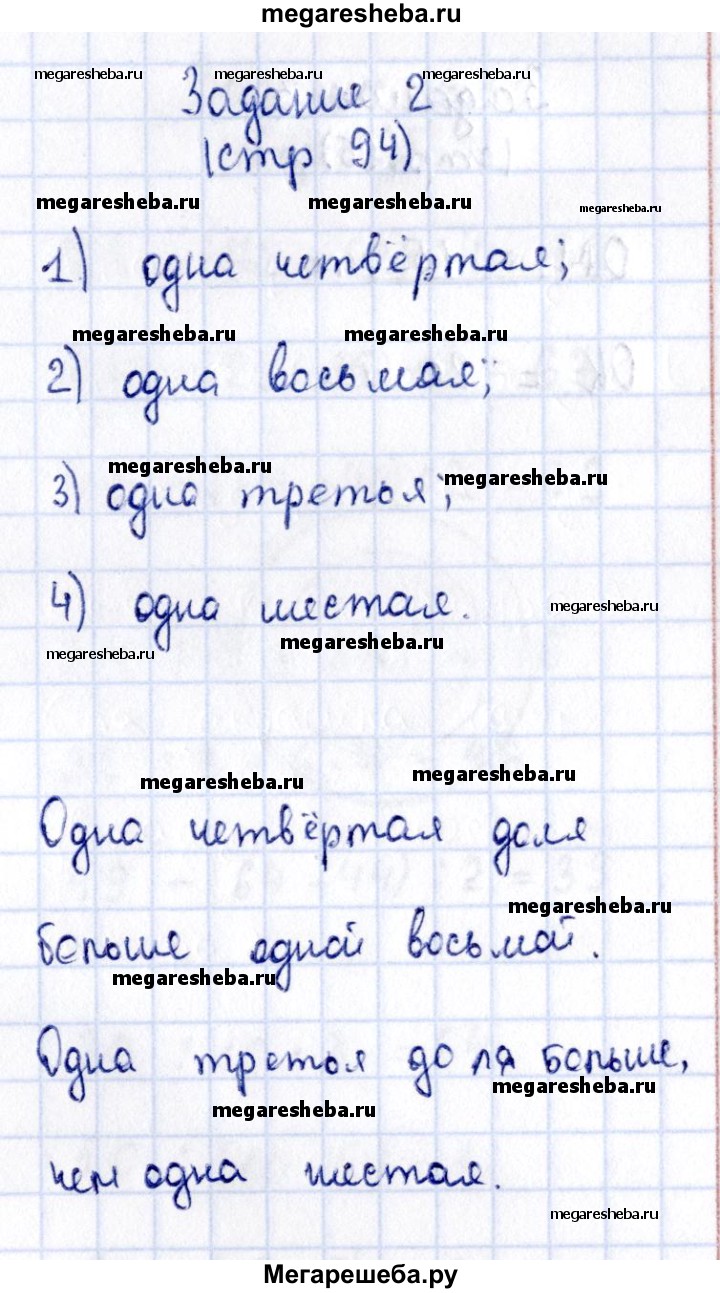 megaresheba.ru
megaresheba.ru megaresheba.ru megaresheba.ru
Задание 2
(стр 94)
megaresheba.ru megaresheba.ru megaresheba.ru
1) одна четвёртая;
megaresheba.ru megaresheba.ru
2) одна восьмая;
megaresheba.ru megaresheba.ru
3) одна третья;
4) одна шестая.
megaresheba.ru
megaresheba.ru megaresheba.ru
megaresheba.ru megaresheba.ru
Одна четвёртая доля
megaresheba.ru
больше одной восьмой.
megaresheba.ru
Одна третья доля больше,
megaresheba.ru
megaresheba.ru
чем одна шестая.
megaresheba.ru
Мегарешеба.ру